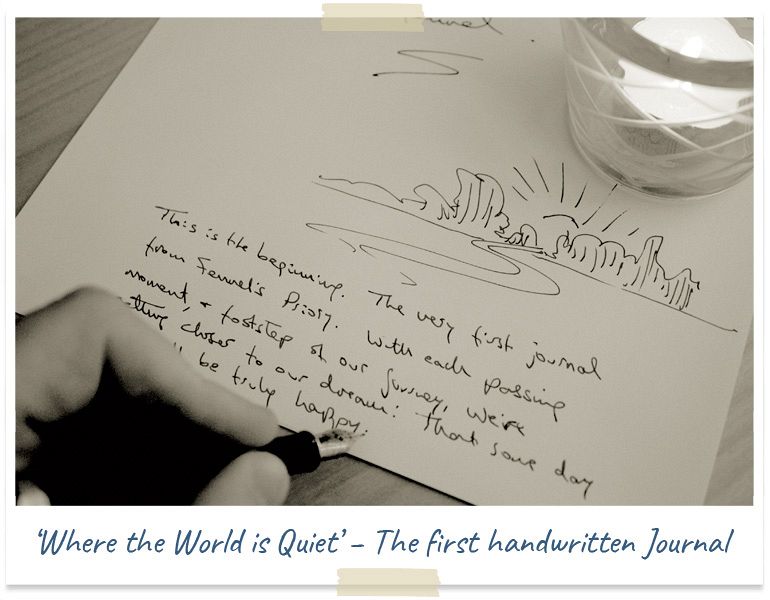 This is the beginning. The very first journal
from Fennel's Priory. With each passing
moment, & footstep of our journey, we're
closer to our dream: that some day
be truly happy.
‘Where the World is Quiet’ – The first handwritten Journal